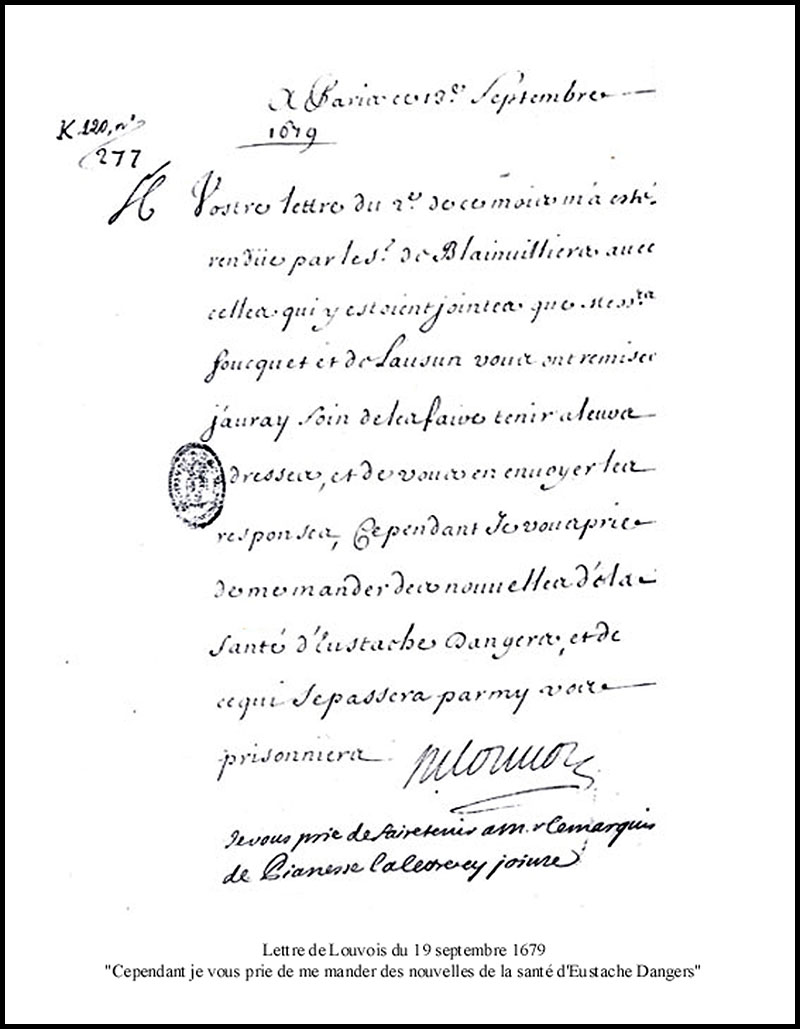 A Paris ce 19e. Septembre
1679
K.120, no
277
M Vostre lettre du 2e. de ce mois m'a esté
rendüe par le Sr. de Blainuilliers auec
celles qui y estoient jointes que Messrs
foucquet et de Lausun vous ont remises
j'auray soin de les faire tenir a leurs
adresses, et de vous en enuoyer les
responses, Cependant Je vous prie
de me mander des nouuelles de la
Santé d'Eustache Dangers, et de
ce qui Se passera parmy vos
prisonniers
Je vous prie de faire tenir a M.r le marquis
de Pianesse la lettre cy jointe
Lettre de Louvois du 19 septembre 1679
"Cependant je vous prie de me mander des nouvelles de la santé d'Eustache Dangers"